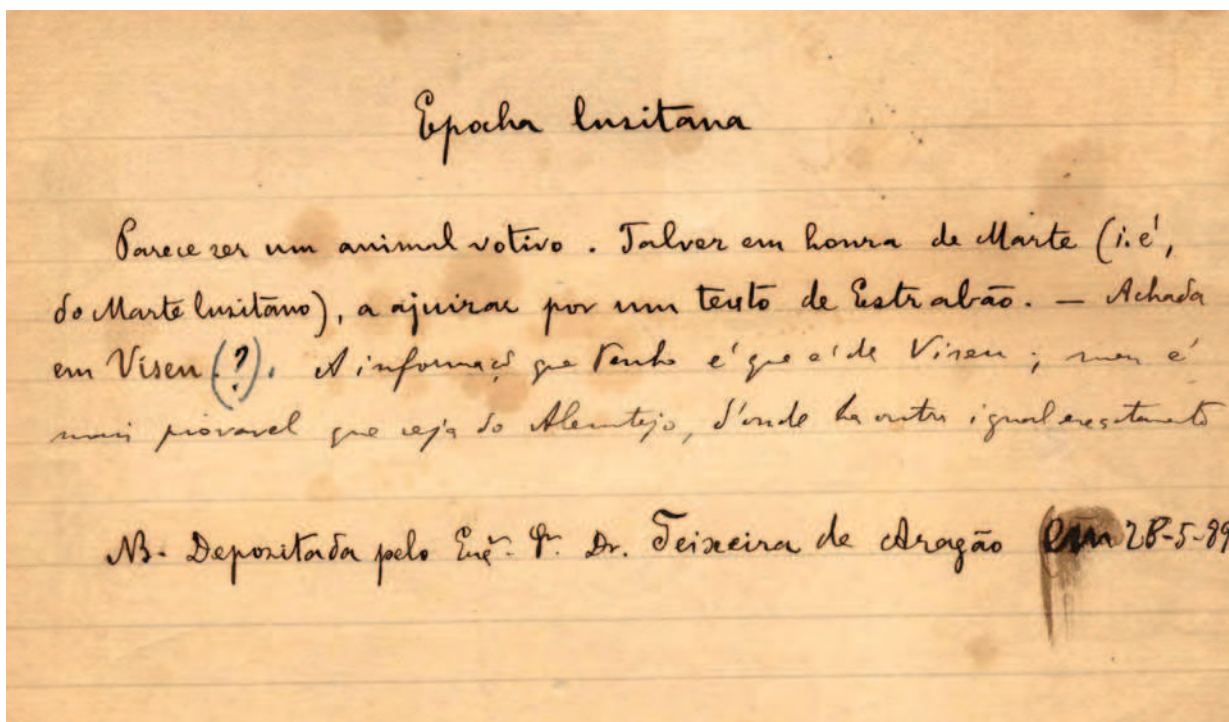 Epocha lusitana
Parece ser um animal votivo. Talvez em honra de Marte (i. é,
do Marte lusitano), a ajuizar por um texto de Estrabão. — Achada
em Viseu (?). A informaçõ que tenho é que é de Viseu; mas é
mais provavel que seja do Alemtejo, d'onde ha outra igual exactamente
NB. Depositada pelo Exmº. Sr. Dr. Teixeira de Aragão em 28-5-89